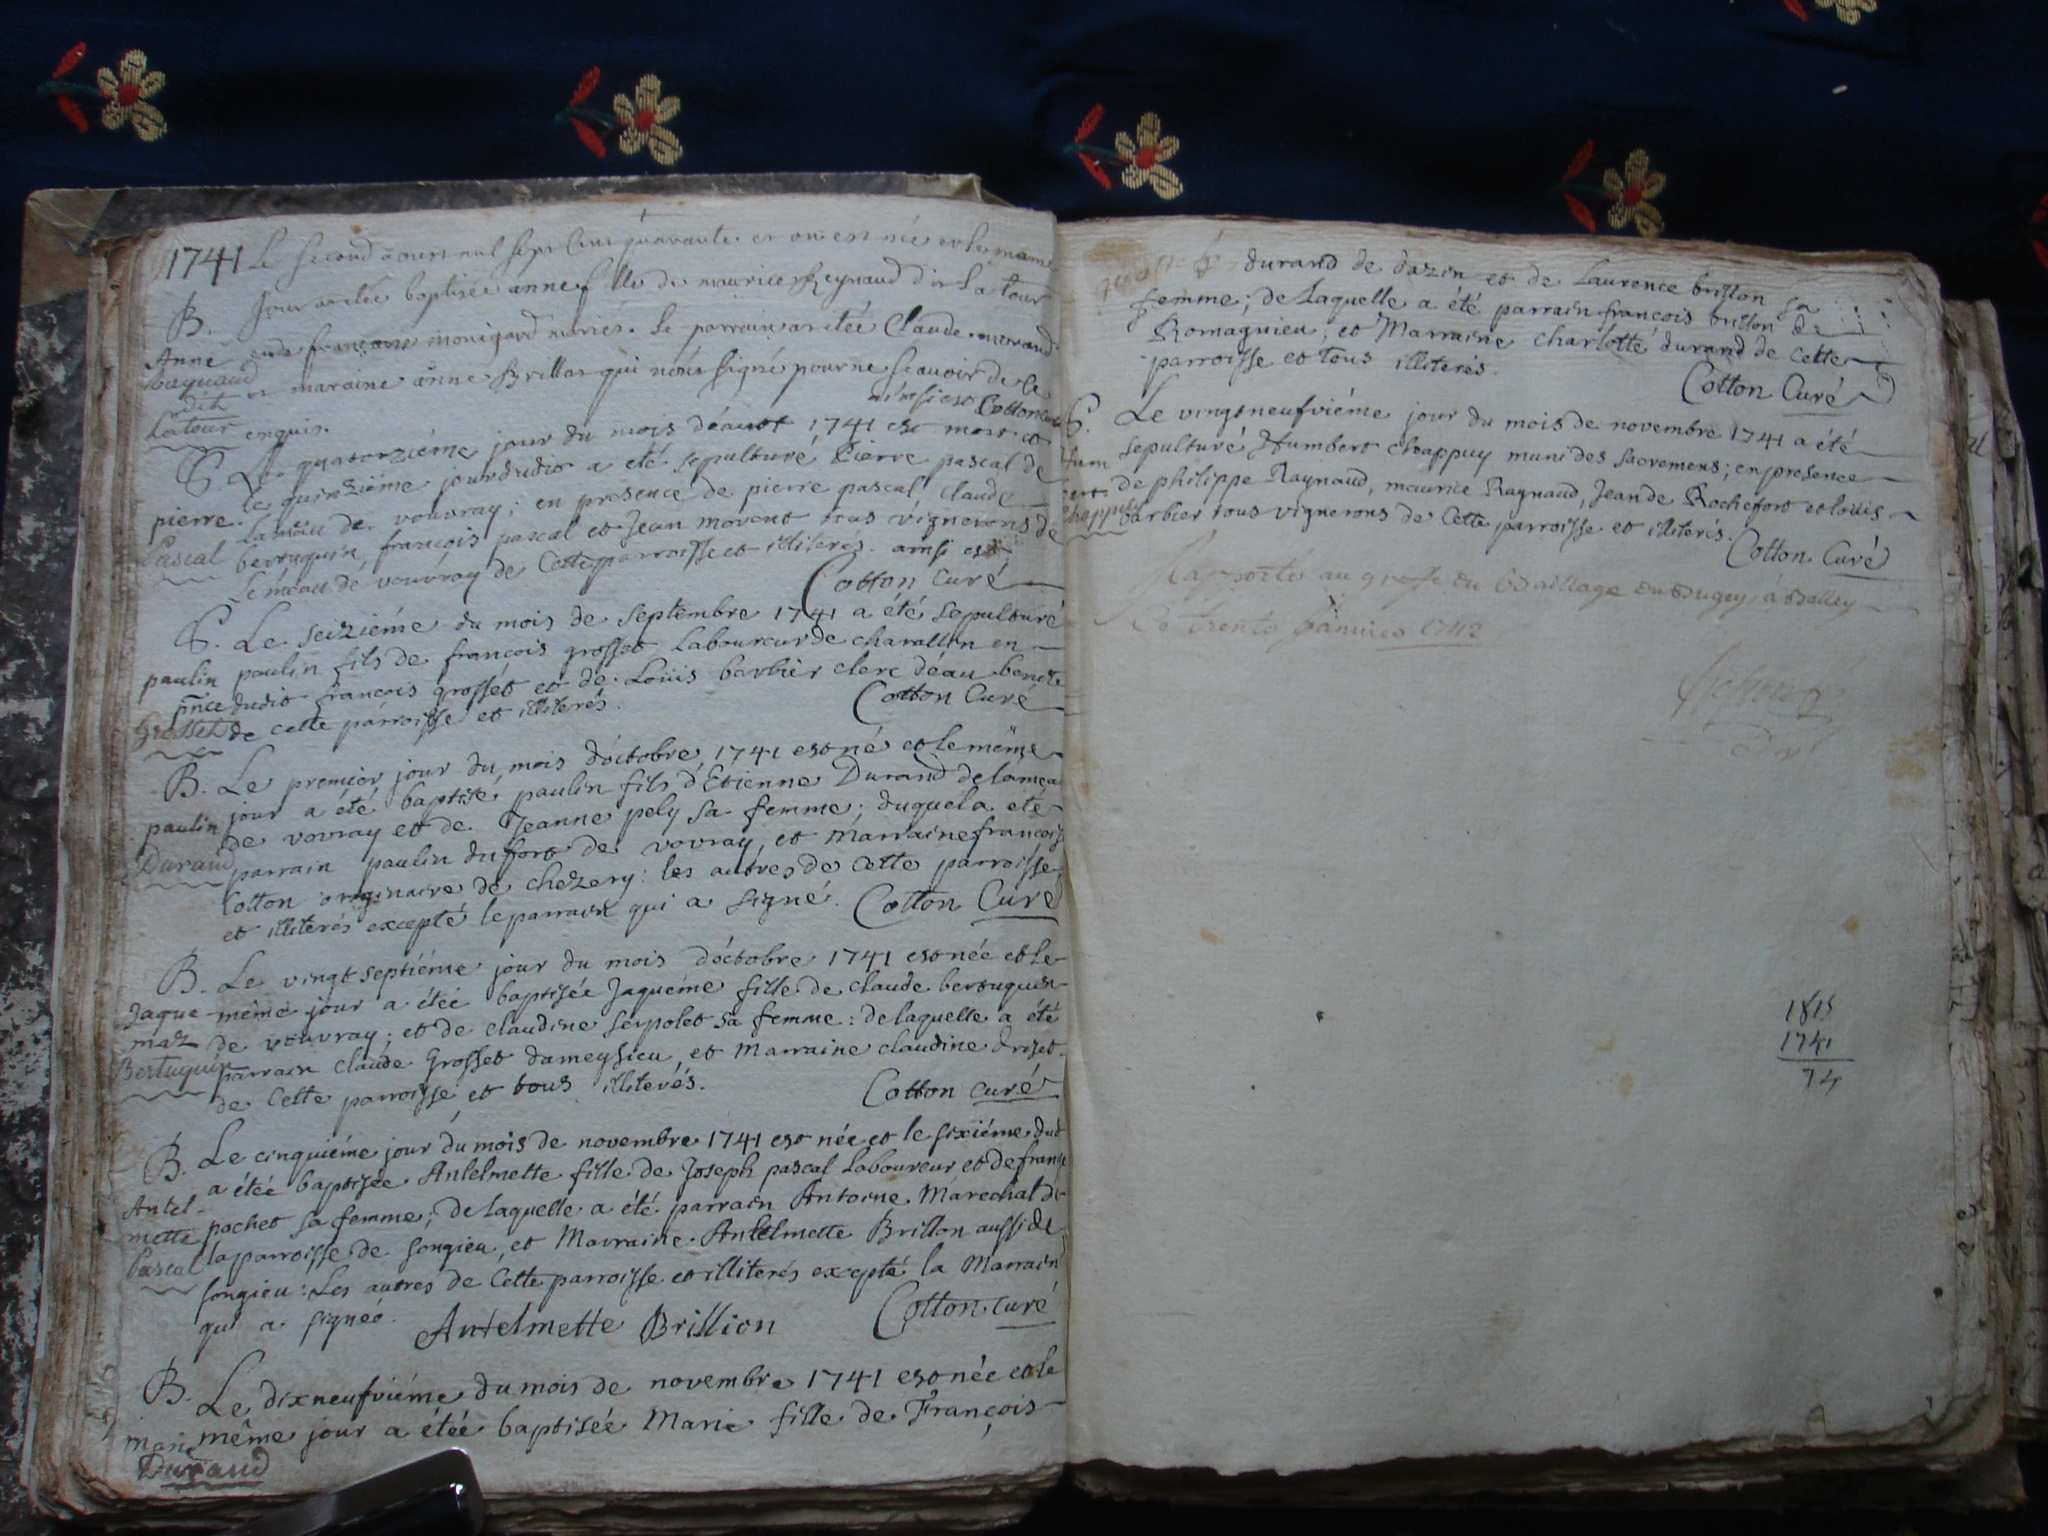 1741 Le second aoust mil sept cent quarante et un est née et le meme
B. jour a etée baptisée anne fille de maurice Reynaud dit la tour
Anne et de françoise monigard maries. Le parrain a etée Claude morand
Raynaud et maraine anne Brillat qui n'ont signé pour ne scavoir de ce
dit
Latour enquis. ainsi est Cotton curé
S. Le quatorziéme jour du mois d'aout 1741 est mort et
le quinziéme jour dudit a eté sepulturé Pierre pascal de
pierre de vouvray; en presence de pierre pascal, claude
Pascal bertuquin, françois pascal et Jean morent tous vignerons de
de vouvray de Cette parroisse et illiterés. ainsi est
Cotton curé
S. Le seiziéme du mois de septembre 1741 a été sepulturé
paulin paulin fils de françois grosset Laboureur de charallin en
pnce dudit françois grosset et de Loüis barbier clerc d'eau benite
Grosset de cette parroisse et illiterés. Cotton Curé
B. Le premier jour du mois d'octobre 1741 est né et le même
jour a été baptisé paulin fils d'Etienne Durand de
paulin de vovray et de Jeanne pely sa femme; duquel a eté
Durand parrain paulin dufort de vovray, et marraine françoise
Cotton originaire de chezery: les autres de Cette parroisse
et illiterés excepté le parrain qui a signé. Cotton Curé
B. Le vingt septiéme jour du mois d'octobre 1741 est née et le
Jaque même jour a étée baptisée Jaquéme fille de claude bertuquin
maz de vouvray; et de claudine serpolet sa femme: de laquelle a été
Bertuquin parrain claude Grosset dameysieu, et Marraine claudine
de Cette parroisse et tous illiterés. Cotton curé
B. Le cinquiéme jour du mois de novembre 1741 est née et le sixiéme dud
a étée baptisée Antelmette fille de Joseph pascal Laboureur et de
Antel-
mette pochet sa femme; de laquelle a été parrain Antoine Maréchal de
Pascal la parroisse de songieu, et Marraine Antelmette Brillon aussi de
songieu: Les autres de Cette parroisse et illiterés excepté la Marraine
qui a signéé. Antelmette Brillion Cotton curé
B. Le dixneufviéme du mois de novembre 1741 est née et le
marie même jour a étée baptisée Marie fille de François
Durand
durand de dazin et de Laurence brillon sa
femme; de Laquelle a été parrain françois brillon de
Romagnieu; et Marraine charlotte durand de cette
parroisse et tous illiterés.
Cotton Curé
S. Le vingtneufviéme jour du mois de novembre 1741 a été
Hum sepulturé Humbert chappuy muni des sacremens; en presence
bert de philippe Raynaud, maurice Raynaud, Jean de Rochefort et loüis
Chappuy barbier tous vignerons de Cette parroisse et illiterés.
Cotton Curé
Rapporté au greffe du Bailliage du Bugey à Belley
Le trente janvier 1742
1815
1741
74